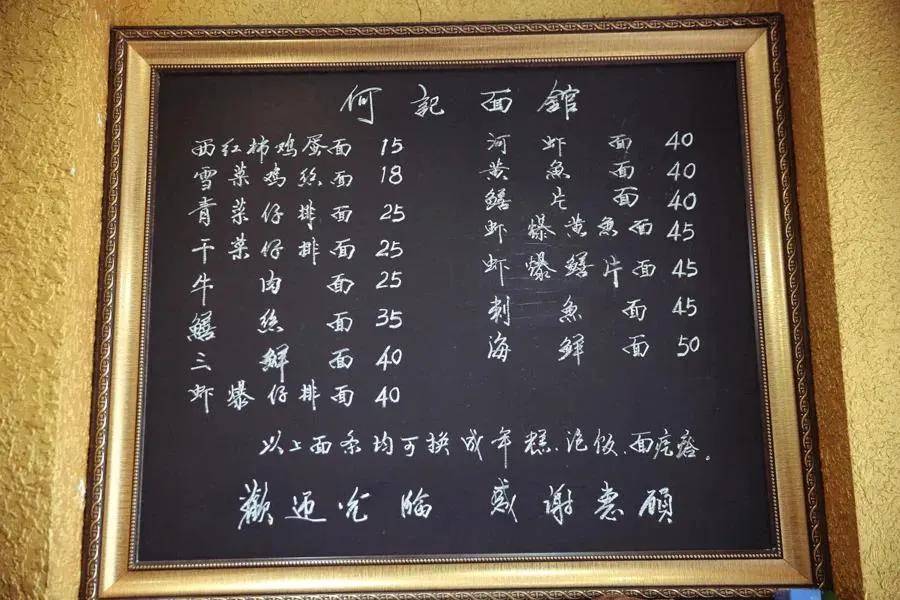 何記面館
西红柿鸡蛋面 15
雪菜鸡絲面 18
青菜仔排面 25
干菜仔排面 25
牛肉面 25
鱔絲面 35
三鮮面 40
虾爆仔排面 40
河虾面 40
黄魚面 40
鱔片面 40
虾爆黄魚面 45
虾爆鱔片面 45
刺魚面 45
海鮮面 50
以上面条均可换成年糕、泡饭、面疙瘩。
歡迎光臨 感謝惠顧